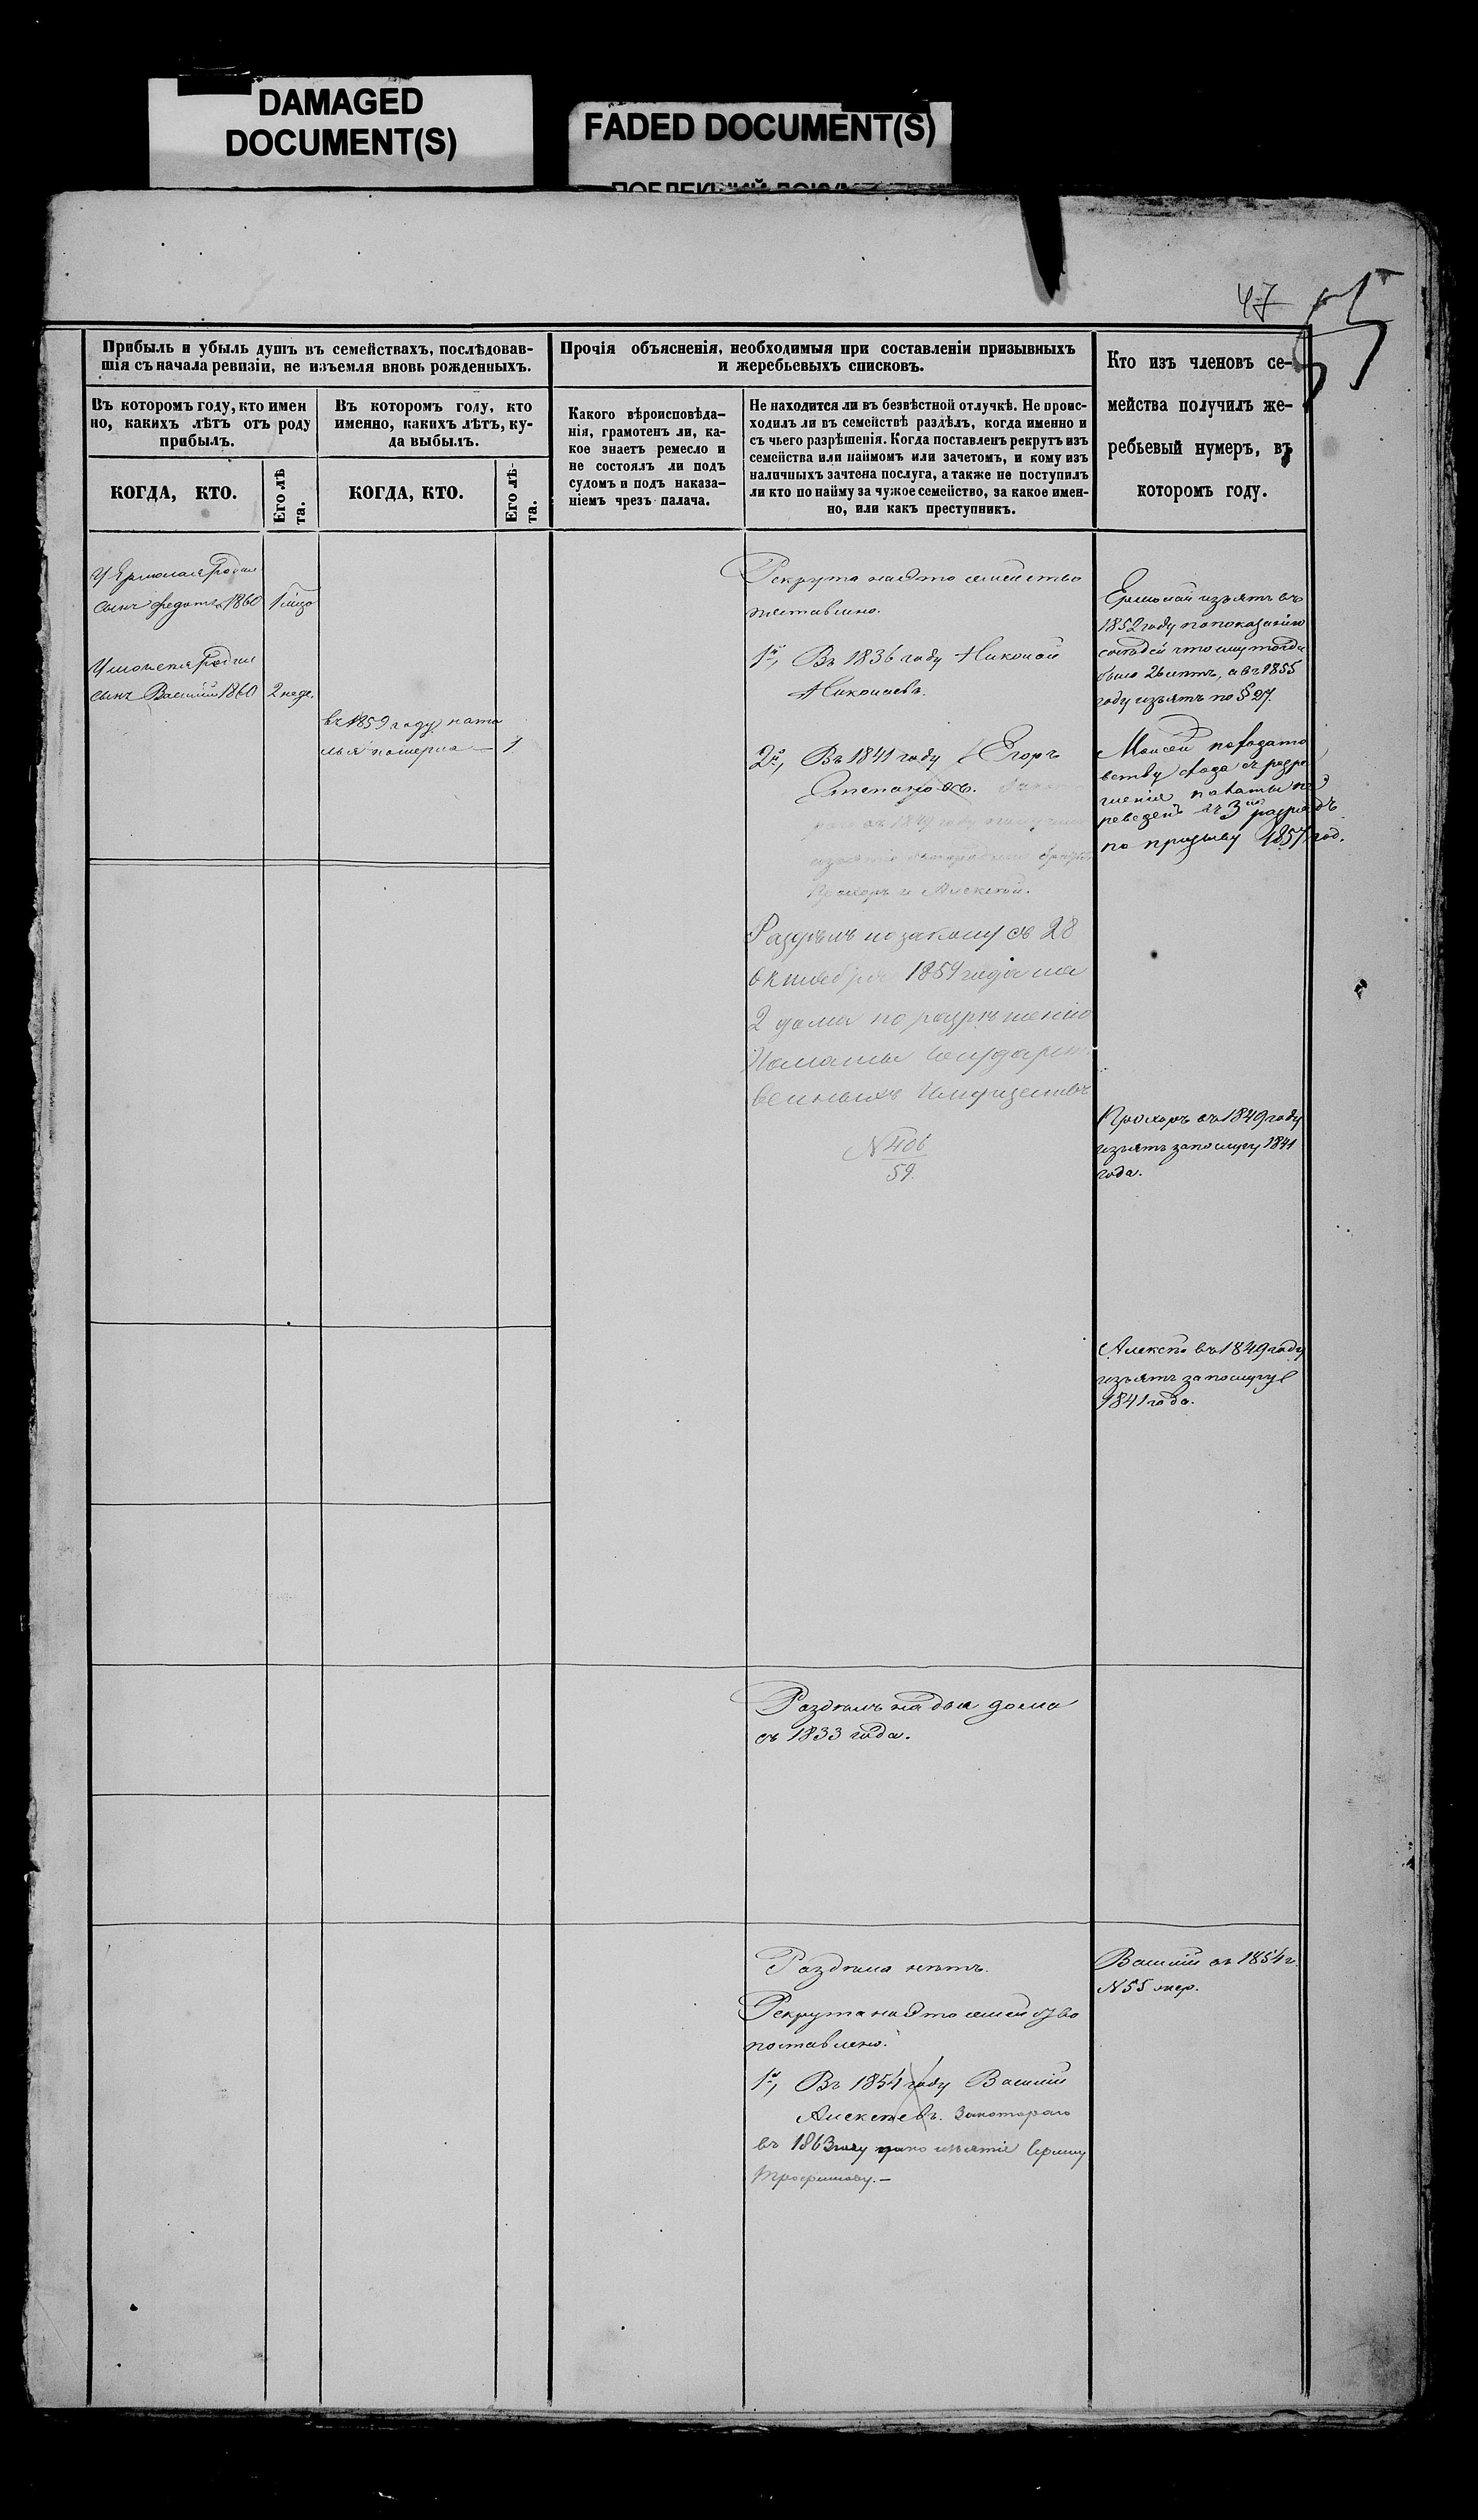 DAMAGED
DOCUMENT(S)
FADED DOCUMENT(S)
47
Прибыль и убыль душъ въ семействахъ, послѣдовав-
шія съ начала ревизіи, не изъемля вновь рожденныхъ.
Въ которомъ году, кто имен
но, какихъ лѣтъ отъ роду
прибылъ.
КОГДА, КТО.
Его лѣ
та.
Въ которомъ году, кто
именно, какихъ лѣтъ, ку-
да выбылъ.
КОГДА, КТО.
Его лѣ-
та.
Прочія объясненія, необходимыя при составленіи призывныхъ
и жеребьевыхъ списковъ.
Какого вѣроисповѣда-
нія, грамотенъ ли, ка-
кое знаетъ ремесло и
не состоялъ ли подъ
судомъ и подъ наказа-
ніемъ чрезъ палача.
Не находится ли въ безвѣстной отлучкѣ. Не проис-
ходилъ ли въ семействѣ раздѣлъ, когда именно и
съ чьего разрѣшенія. Когда поставленъ рекрутъ изъ
семейства или наймомъ или зачетомъ, и кому изъ
наличныхъ зачтена послуга, а также не поступилъ
ли кто по найму за чужое семейство, за какое имен-
но, или какъ преступникъ.
Кто изъ членовъ се-
мейства получилъ же-
ребьевый нумеръ, въ
которомъ году.
У Ермолая родил
сынъ Федотъ 1860
У Моисея родил
сынъ Василій 1860
2 неде.
въ 1859 году ната
лья померла — 1
Рекрута на это семейство
поставлено.
1й, Въ 1836 году Николай
Николаевъ.
2й, Въ 1841 году Егоръ
Степановъ.
въ 1849 году
Прохоръ и Алексей.
Раздѣлъ по закону съ 28
октября 1859 года на
2 дома по разрѣшенію
Палаты Государст
венныхъ Имуществъ
N 406
59.
Ермолай изъятъ въ
1852 году по показанію
что ему тогда
было 26 лѣтъ, а въ 1855
году изъятъ по § 27.
Моисей по ходатай
ству съ разрѣ
шенія палаты пе
реведенъ въ 3й разрядъ
по призыву 1857 год.
Прохоръ въ 1849 году
изъятъ за послугу 1841
года.
Алексѣй въ 1849 году
изъятъ за послугу
1841 года.
Раздѣлъ на два дома
съ 1833 года.
Раздѣла нѣтъ.
Рекрута на это семейство
поставлено.
1й, Въ 1854 году Василій
Алексѣевъ. За котораго
въ 1863 году изъятіе
Трофимову. —
Василій въ 1854 г.
N 55 жер.